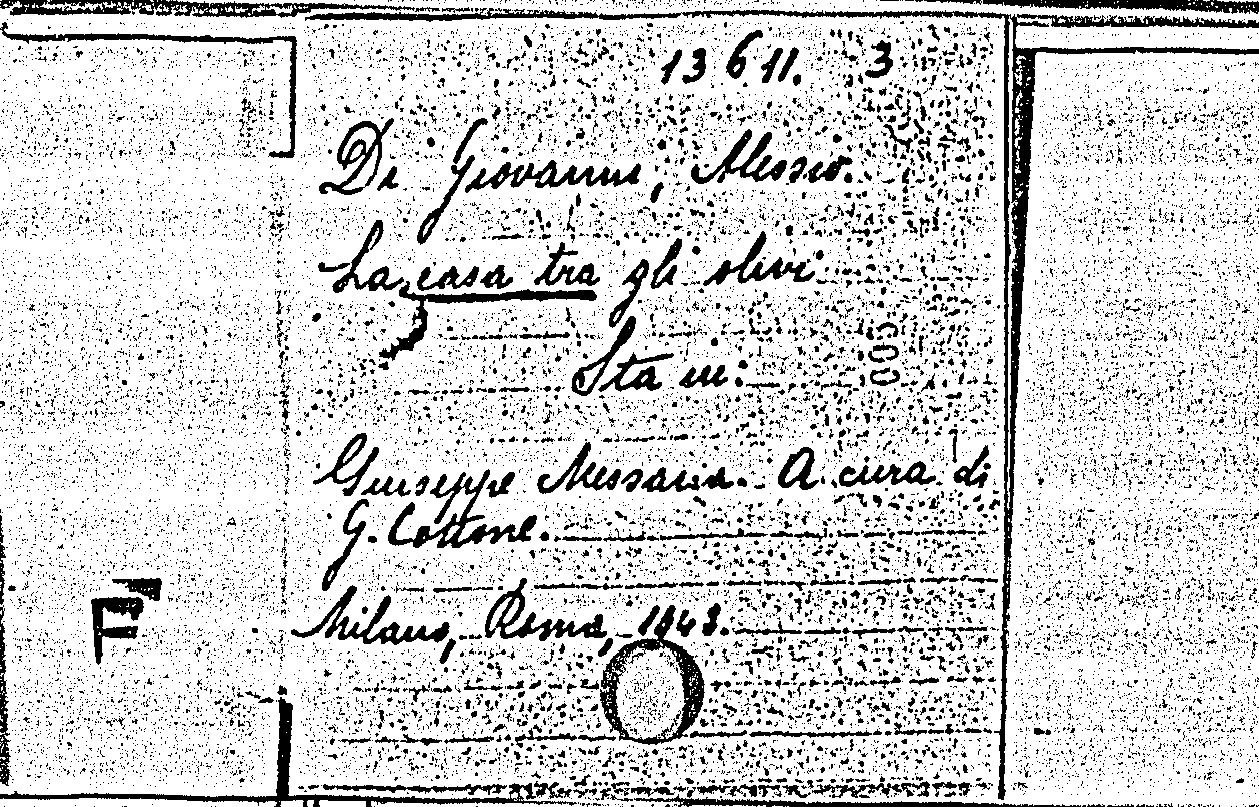 13 6 11. 3
Di Giovanni, Alessio.
La casa tra gli olivi
Sta in:
Giuseppe Messana. A cura di
G. Cottone.
Milano, Roma, 1943.
F